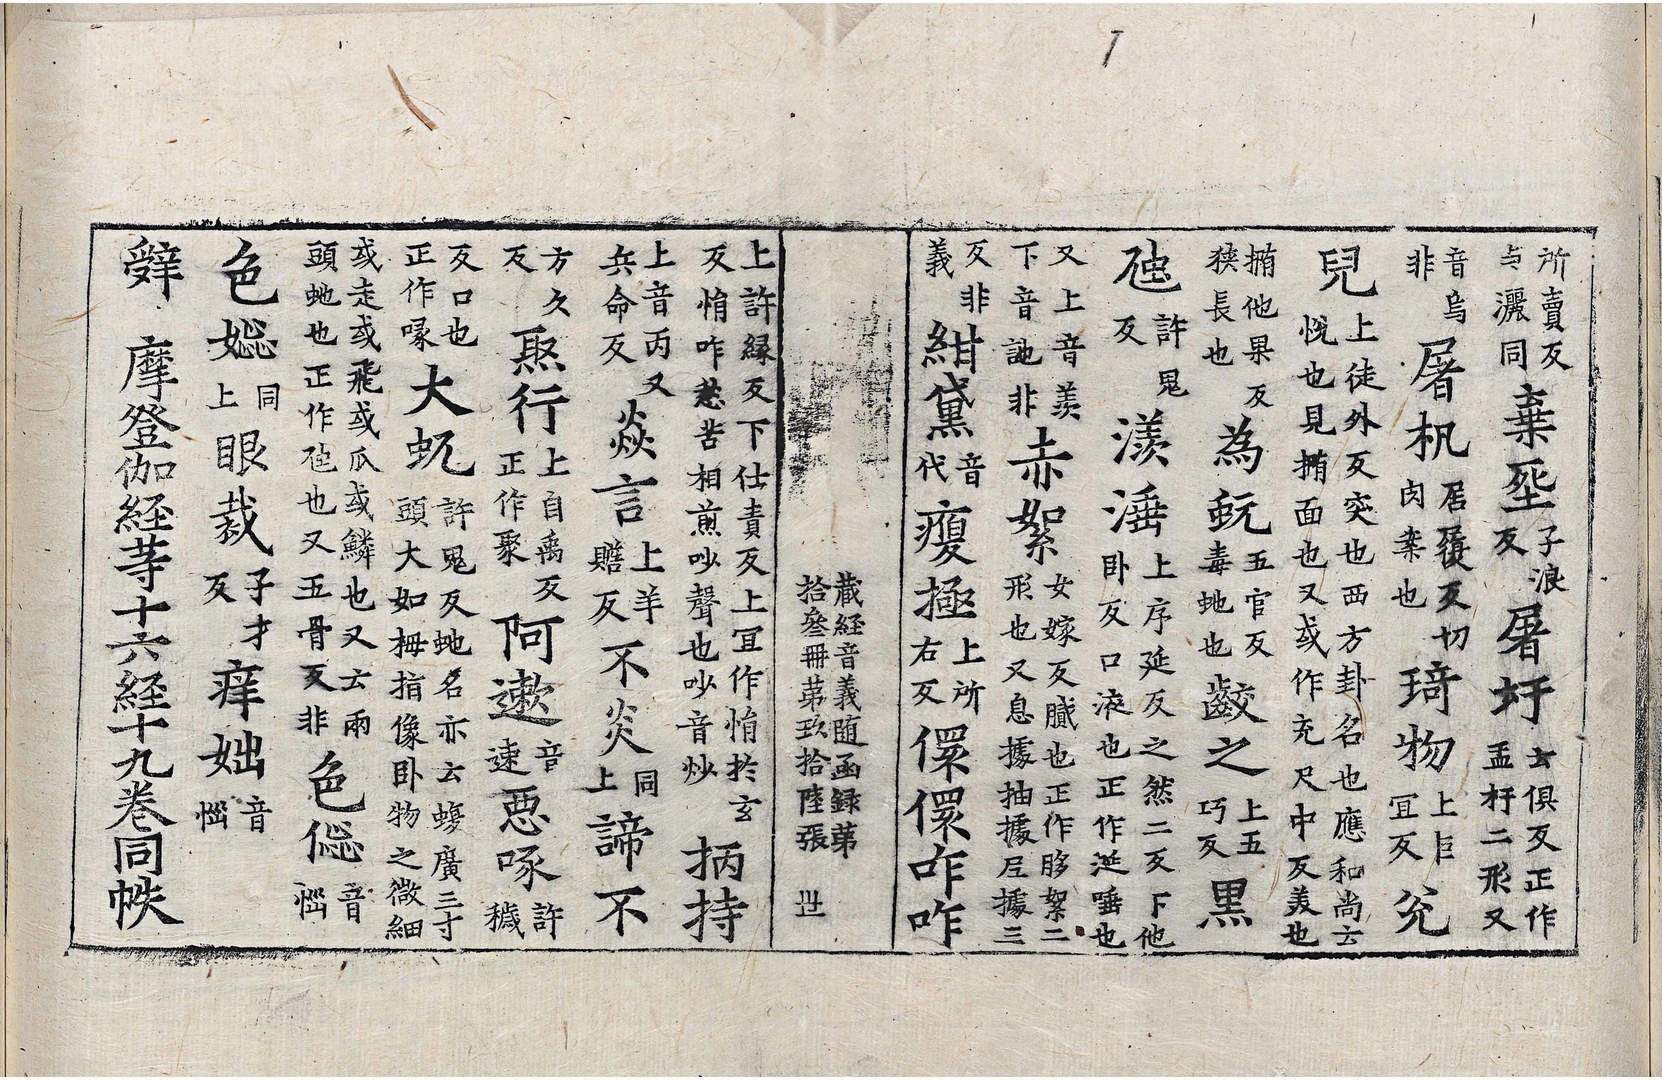 所賣反与灑同棄埊子浪反屠圩云俱反正作盂杅二形又
音烏非屠机居履反切肉案也琦物上巨冝反兊
兒上徒外反突也西方卦名也應和尚云悅也見撱面也又或作充尺中反美也
撱他果反狭長也為蚖五官反毒虵也齩之上五巧反黒
虺許鬼反漾涶上序延反之然二反下他卧反口液也正作涎唾也
又上音羡下音訑非赤絮女嫁反膩也正作䏧絮二形也又息據抽據尼據三
反非義紺黛音代瘦極上所右反儽儽咋咋
藏経音義随函録苐拾叅冊苐玖拾陸張 世
上許縁反下仕責反上冝作悁扵玄反悁咋愁苦相煎吵聲也吵音炒抦持
上音丙又兵命反焱言上羊贍反不炎同上諦不
方久反聚行上自禹反正作聚阿遬音速恶喙許穢
反口也正作喙大虺許鬼反虵名亦云蝮廣三寸頭大如栂指像卧物之微細
或走或飛或瓜或鱗也又云兩頭虵也正作虺也又五骨反非色㑳音惱
色㛴同上眼裁子才反痒㛴音惱
辤 摩登伽経䒭十六経十九巻同帙